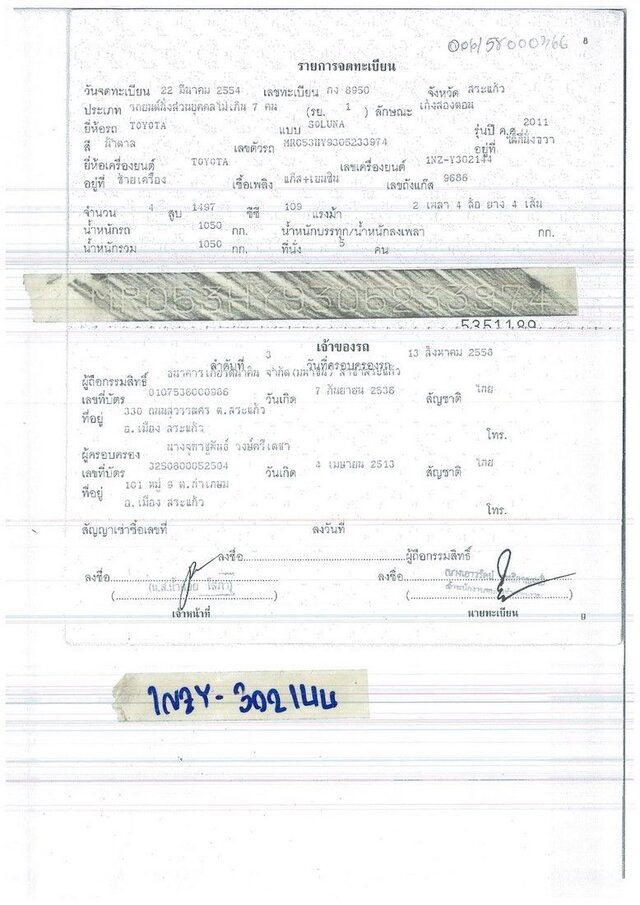 006/58000366 8
รายการจดทะเบียน
วันจดทะเบียน 22 มีนาคม 2554 เลขทะเบียน กง 8950 จังหวัด สระแก้ว
ประเภท รถยนต์นั่งส่วนบุคคลไม่เกิน 7 คน (รย. 1 ) ลักษณะ เก๋งสองตอน
ยี่ห้อรถ TOYOTA แบบ SOLUNA รุ่นปี ค.ศ. 2011
สี น้ำตาล เลขตัวรถ MR053HY9305233974 อยู่ที่ ใต้ที่นั่งขวา
ยี่ห้อเครื่องยนต์ TOYOTA เลขเครื่องยนต์ 1NZ-Y302144
อยู่ที่ ซ้ายเครื่อง เชื้อเพลิง แก๊ส+เบนซิน เลขถังแก๊ส 9686
จำนวน 4 สูบ 1497 ซีซี 109 แรงม้า 2 เพลา 4 ล้อ ยาง 4 เส้น
น้ำหนักรถ 1050 กก. น้ำหนักบรรทุก/น้ำหนักลงเพลา กก.
น้ำหนักรวม 1050 กก. ที่นั่ง 5 คน
MR053HY9305233974
5351189
เจ้าของรถ
ลำดับที่ 3 วันที่ครอบครองรถ 13 สิงหาคม 2558
ผู้ถือกรรมสิทธิ์ ธนาคารเกียรตินาคิน จำกัด(มหาชน) สาขาสระแก้ว
เลขที่บัตร 0107536000986 วันเกิด 7 กันยายน 2536 สัญชาติ ไทย
ที่อยู่ 330 ถนนสุวรรณศร ต.สระแก้ว
อ.เมือง สระแก้ว
โทร.
ผู้ครอบครอง
เลขที่บัตร 3250800052504 วันเกิด 4 เมษายน 2513 สัญชาติ ไทย
ที่อยู่ 101 หมู่ 9 ต.ท่าเกษม
อ.เมือง สระแก้ว
โทร.
สัญญาเช่าซื้อเลขที่ ลงวันที่
ลงชื่อ ผู้ถือกรรมสิทธิ์
ลงชื่อ ลงชื่อ
เจ้าหน้าที่ นายทะเบียน
9
1NZY-302144